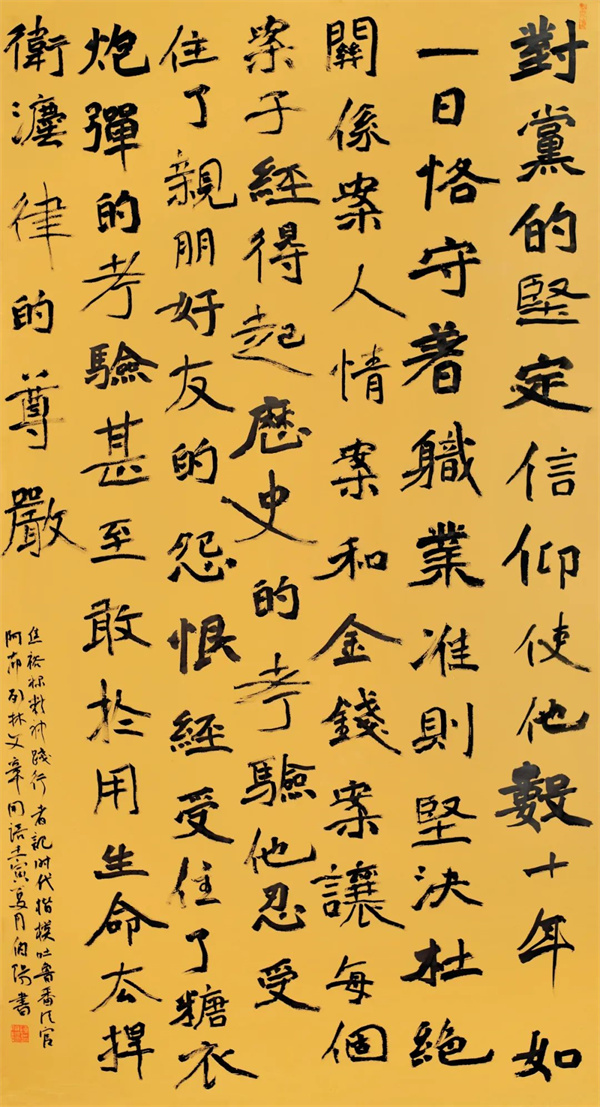 對黨的堅定信仰使他數十年如
一日恪守着職業准則堅決杜絕
關係案人情案和金錢案讓每個
案子經得起歷史的考驗他忍受
住了親朋好友的怨恨經受住了糖衣
炮彈的考驗甚至敢於用生命去捍
衛灋律的尊嚴
焦裕祿精神踐行者記时代楷模吐鲁番法官
阿布列林文章語壬寅夏月書